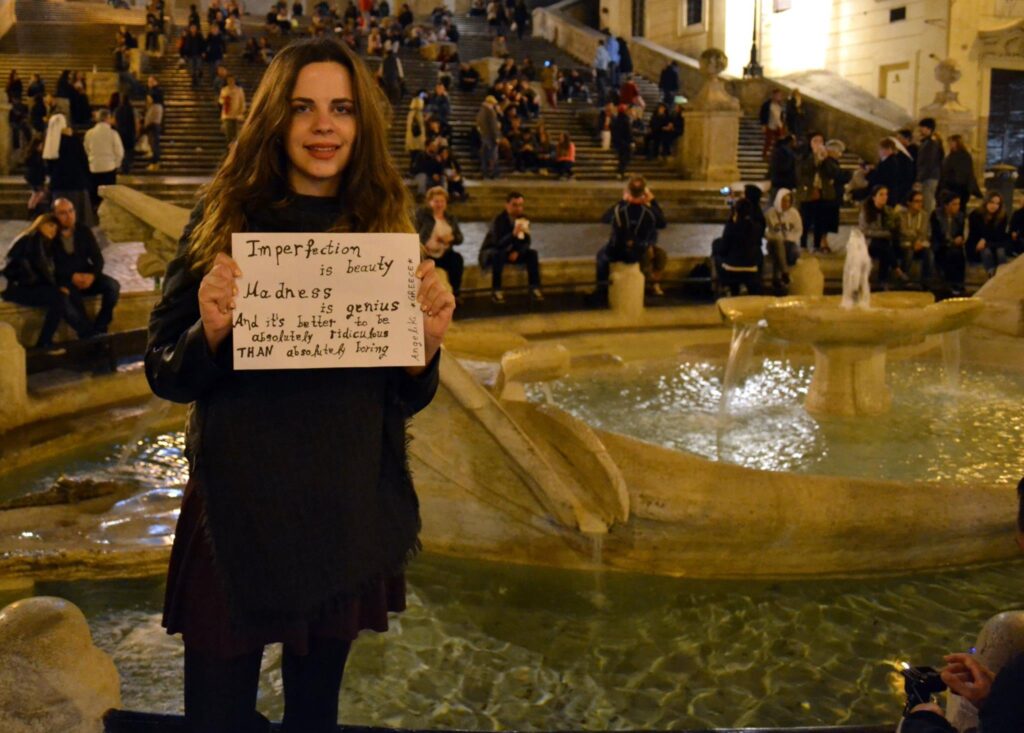 Imperfection
is beauty
Madness
is genius
And it's better to be
absolutely ridiculous
THAN absolutely boring
Angelik. *GREECE*